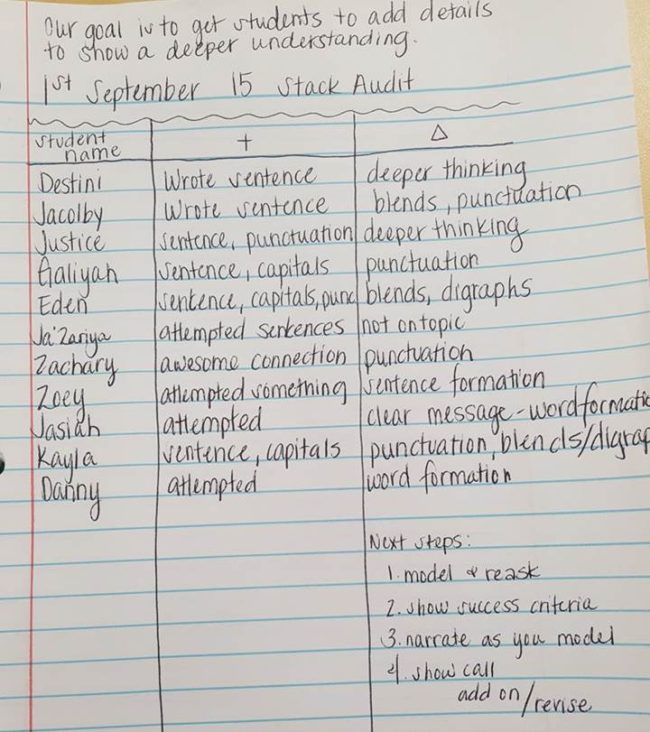 Our goal is to get students to add details
to show a deeper understanding.
1st September 15 Stack Audit
student name + Δ
Destini Wrote sentence deeper thinking
Jacolby Wrote sentence blends, punctuation
Justice sentence, punctuation deeper thinking
Aaliyah sentence, capitals punctuation
Eden sentence, capitals, punc blends, digraphs
Ja'Zariya attempted sentences not on topic
Zachary awesome connection punctuation
Zoey attempted something sentence formation
Jasiah attempted clear message - word formatio
Kayla sentence, capitals punctuation, blends/digrap
Danny attempted word formation
Next steps:
1. model & reask
2. show success criteria
3. narrate as you model
4. show call
add on/revise